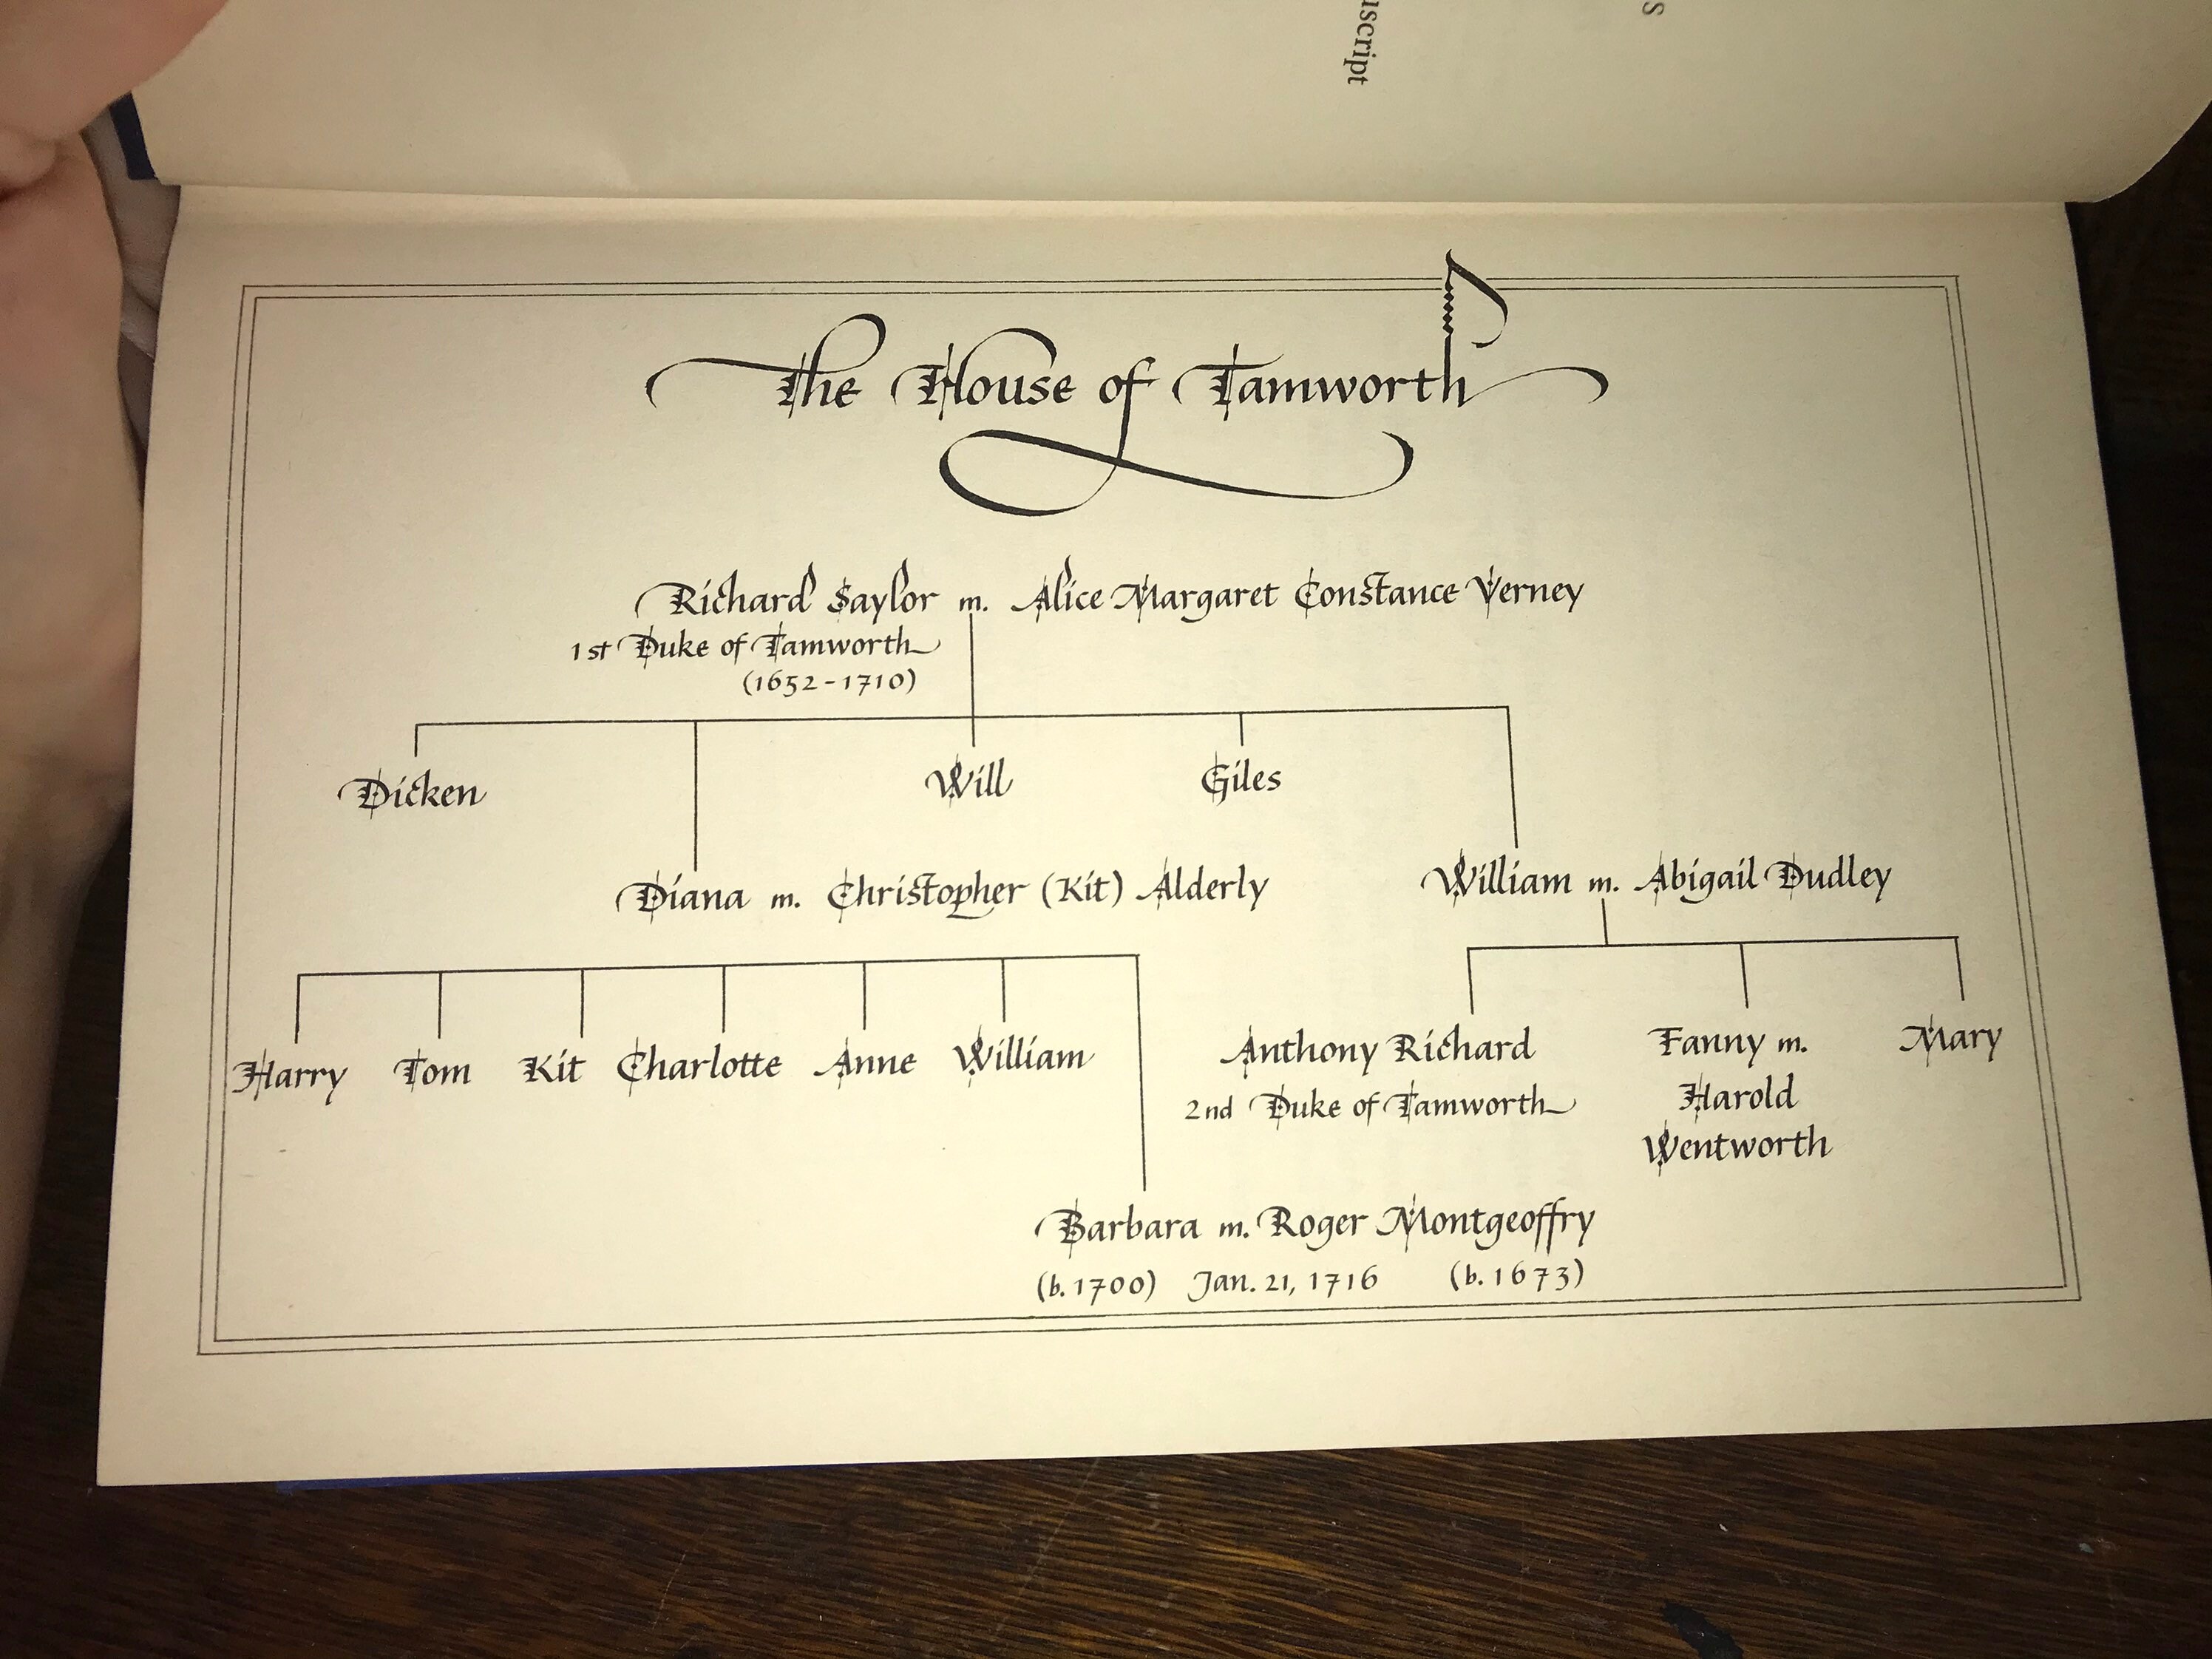 uscript
S
The House of Tamworth
Richard Saylor m. Alice Margaret Constance Verney
1st Duke of Tamworth
(1652-1710)
Dicken
Will
Giles
Diana m. Christopher (Kit) Alderly
William m. Abigail Dudley
Harry Tom Kit Charlotte Anne William
Anthony Richard
2nd Duke of Tamworth
Fanny m.
Harold
Wentworth
Mary
Barbara m. Roger Montgeoffry
(b. 1700) Jan. 21, 1716 (b. 1673)